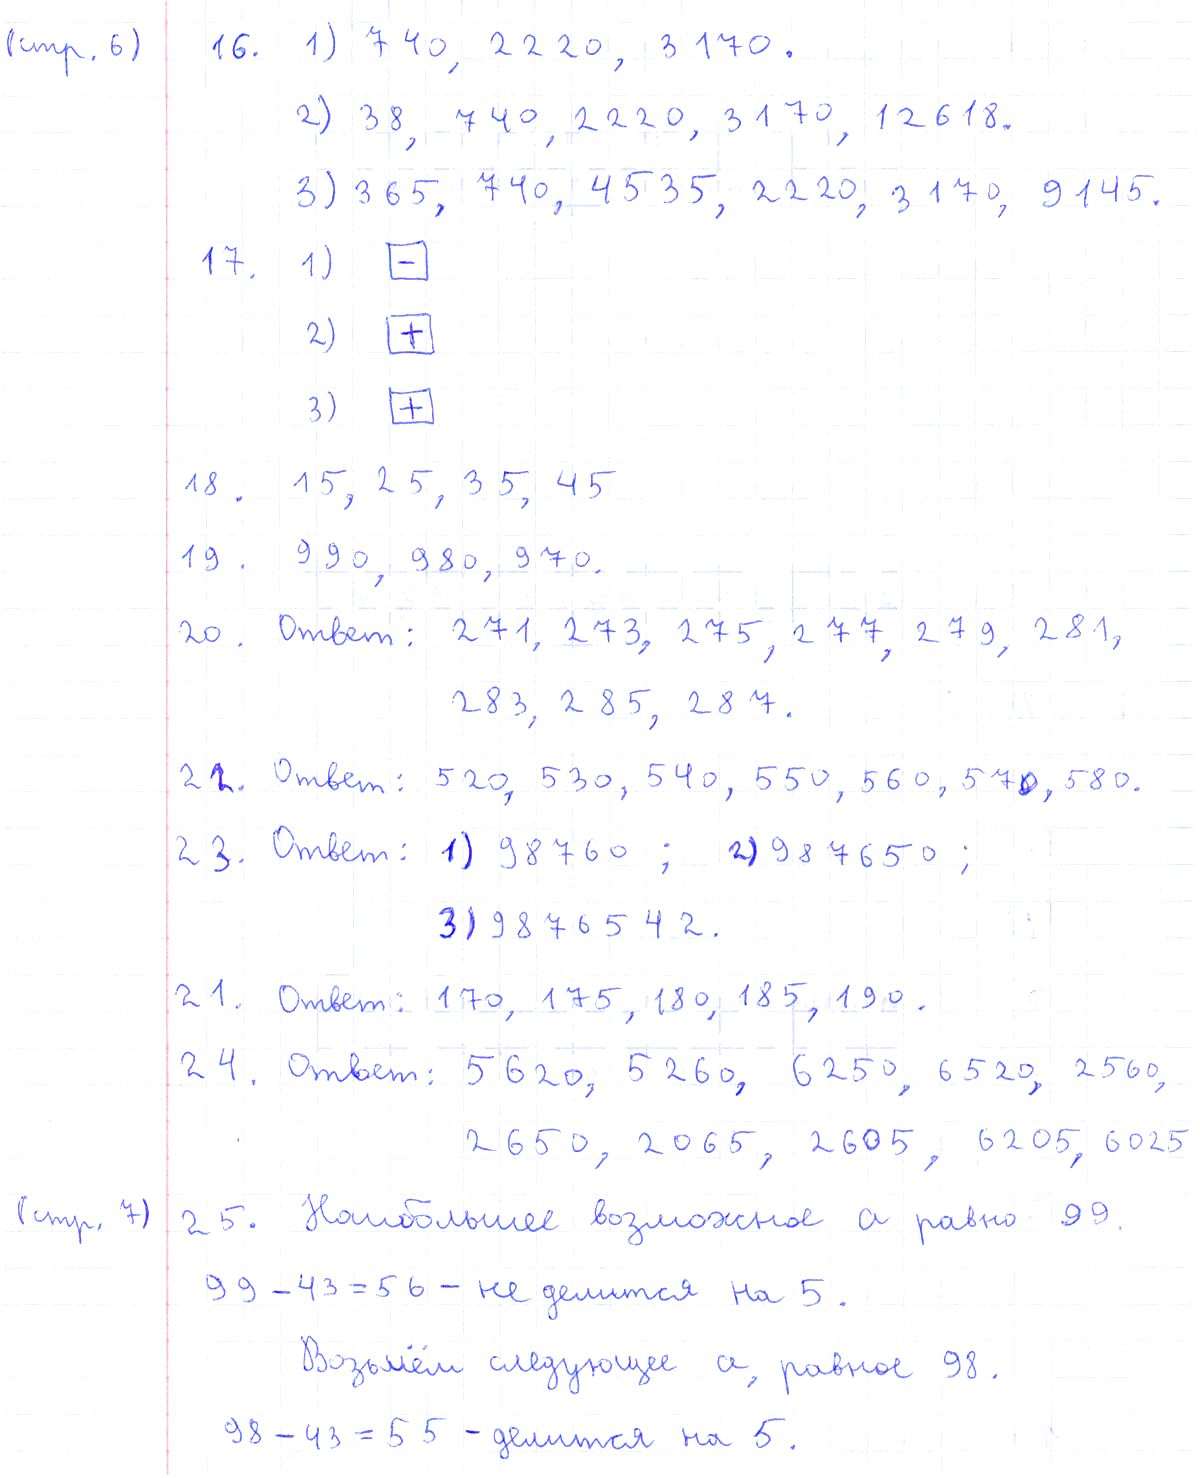 (стр. 6) 16. 1) 740, 2220, 3170.
2) 38, 740, 2220, 3170, 12618.
3) 365, 740, 4535, 2220, 3170, 9145.
17. 1) -
2) +
3) +
18. 15, 25, 35, 45
19. 990, 980, 970.
20. Ответ: 271, 273, 275, 277, 279, 281,
283, 285, 287.
22. Ответ: 520, 530, 540, 550, 560, 570, 580.
23. Ответ: 1) 98760 ; 2) 987650 ;
3) 9876542.
21. Ответ: 170, 175, 180, 185, 190.
24. Ответ: 5620, 5260, 6250, 6520, 2560,
2650, 2065, 2605, 6205, 6025
(стр. 7) 25. Наибольшее возможное a равно 99.
99 - 43 = 56 - не делится на 5.
Возьмём следующее a, равное 98.
98 - 43 = 55 - делится на 5.